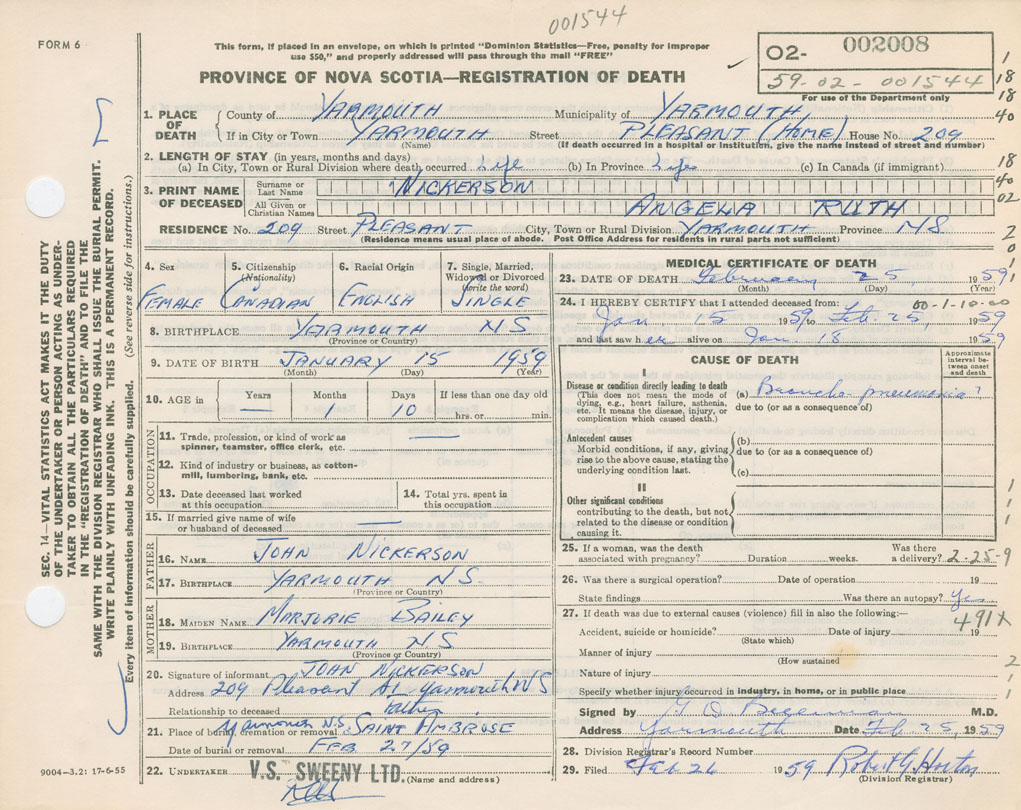 001544
FORM 6
This form, if placed in an envelope, on which is printed "Dominion Statistics—Free, penalty for improper
use $50," and properly addressed will pass through the mail "FREE"
PROVINCE OF NOVA SCOTIA—REGISTRATION OF DEATH
02- 002008
59-02-001544
For use of the Department only
1. PLACE OF DEATH
County of YARMOUTH Municipality of YARMOUTH
If in City or Town YARMOUTH Street PLEASANT (HOME) House No. 209
(Name) (If death occurred in a hospital or institution, give the name instead of street and number)
2. LENGTH OF STAY (in years, months and days)
(a) In City, Town or Rural Division where death occurred Life (b) In Province Life (c) In Canada (if immigrant)
3. PRINT NAME OF DECEASED
Surname or Last Name NICKERSON
All Given or Christian Names ANGELA RUTH
RESIDENCE No. 209 Street PLEASANT City, Town or Rural Division YARMOUTH Province NS
(Residence means usual place of abode. Post Office Address for residents in rural parts not sufficient)
4. Sex 5. Citizenship 6. Racial Origin 7. Single, Married,
(Nationality) Widowed or Divorced
(write the word)
FEMALE CANADIAN ENGLISH SINGLE
8. BIRTHPLACE YARMOUTH NS
(Province or Country)
9. DATE OF BIRTH JANUARY 15 1959
(Month) (Day) (Year)
10. AGE in Years Months Days If less than one day old
— 1 10 hrs. or min.
OCCUPATION
11. Trade, profession, or kind of work as —
spinner, teamster, office clerk, etc.
12. Kind of industry or business, as cotton-
mill, lumbering, bank, etc.
13. Date deceased last worked at this occupation
14. Total yrs. spent in this occupation
15. If married give name of wife —
or husband of deceased
FATHER
16. NAME JOHN NICKERSON
17. BIRTHPLACE YARMOUTH NS.
(Province or Country)
MOTHER
18. MAIDEN NAME MARJORIE BAILEY
19. BIRTHPLACE YARMOUTH NS
(Province or Country)
20. Signature of informant JOHN NICKERSON
Address 209 Pleasant St. Yarmouth NS
Relationship to deceased Father
21. Place of burial, cremation or removal Yarmouth N.S. SAINT AMBROSE
Date of burial or removal FEB 27/59
22. UNDERTAKER V.S. SWEENY LTD.
(Name and address)
9004—3.2: 17-6-55
MEDICAL CERTIFICATE OF DEATH
23. DATE OF DEATH February 25, 1959
(Month) (Day) (Year)
24. I HEREBY CERTIFY that I attended deceased from: 00-1-10-00
Jan 15 1959 to Feb. 25, 1959
and last saw her alive on Jan. 18 1959
CAUSE OF DEATH
Approximate interval between onset and death
I
Disease or condition directly leading to death (a) Broncho pneumonia
(This does not mean the mode of
dying, e.g., heart failure, asthenia, due to (or as a consequence of)
etc. It means the disease, injury, or
complication which caused death.)
Antecedent causes (b)
Morbid conditions, if any, giving due to (or as a consequence of)
rise to the above cause, stating the
underlying condition last. (c)
II
Other significant conditions
contributing to the death, but not
related to the disease or condition
causing it.
25. If a woman, was the death Was there
associated with pregnancy? Duration weeks. a delivery? 2-25-9
26. Was there a surgical operation? Date of operation 19
State findings Was there an autopsy? Yes
27. If death was due to external causes (violence) fill in also the following:—
491X
Accident, suicide or homicide? Date of injury 19
(State which)
Manner of injury
(How sustained
Nature of injury
Specify whether injury occurred in industry, in home, or in public place
Signed by M.D.
Address Yarmouth Date Feb 25, 1959
28. Division Registrar's Record Number
29. Filed Feb 26 1959 Robert G. Horton
(Division Registrar)
SEC. 14—VITAL STATISTICS ACT MAKES IT THE DUTY
OF THE UNDERTAKER OR PERSON ACTING AS UNDER-
TAKER TO OBTAIN ALL THE PARTICULARS REQUIRED
IN THE "REGISTRATION OF DEATH" AND TO FILE THE
SAME WITH THE DIVISION REGISTRAR WHO SHALL ISSUE THE BURIAL PERMIT.
WRITE PLAINLY WITH UNFADING INK. THIS IS A PERMANENT RECORD.
Every item of information should be carefully supplied. (See reverse side for instructions.)
1
18
18
40
18
40
02
2
0
1
1
1
1
2
1
1